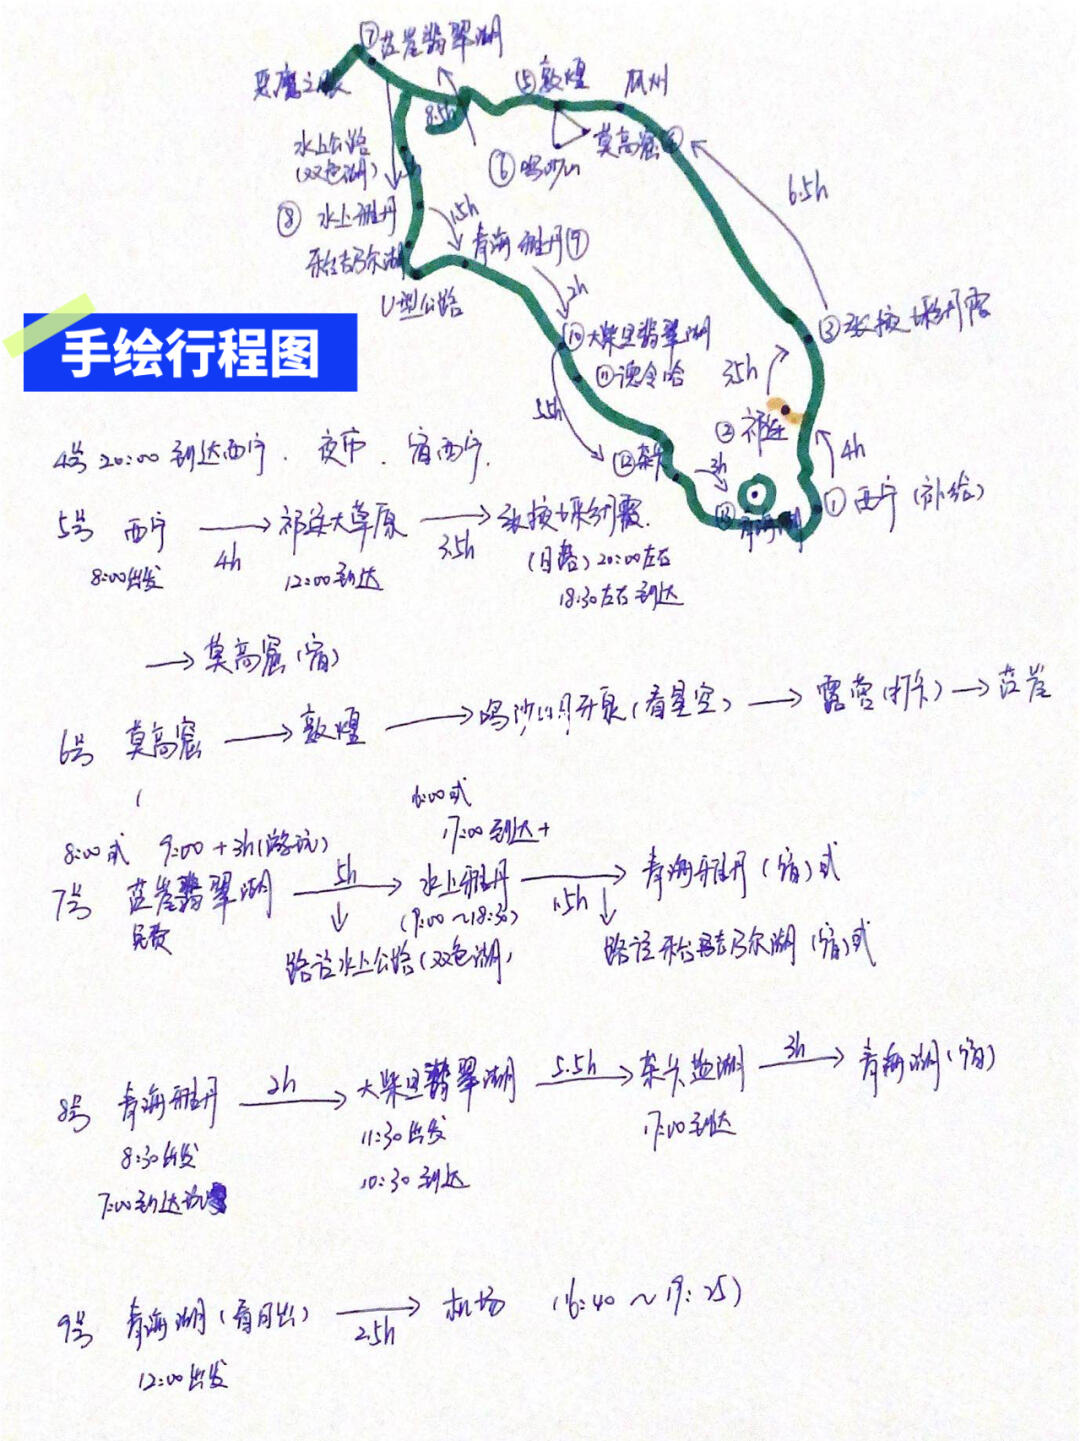 ⑦茫崖翡翠湖
恶魔之眼
⑤敦煌
瓜州
8.5h
莫高窟④
水上公路
(双色湖)
⑥鸣沙山
6.5h
⑧ 水上雅丹
1.5h
青海雅丹⑨
2h
U型公路
⑩大柴旦翡翠湖
③张掖七彩丹霞
手绘行程图
⑪德令哈
3.5h
5.5h
②祁连
4h
⑫茶卡
3h
①西宁(补给)
⑬青海湖
4号 20:00 到达西宁. 夜市. 宿西宁.
5号 西宁 → 祁连大草原 → 张掖七彩丹霞.
4h 3.5h
8:00出发 12:00到达 (日落) 20:00左右
18:30左右到达
→ 莫高窟(宿)
6号 莫高窟 → 敦煌 → 鸣沙山月牙泉(看星空) → 露营(打卡) → 茫崖
16:00或
17:00到达+
8:00或 9:00+3h(游玩)
7号 茫崖翡翠湖 → 水上雅丹 → 青海雅丹(宿)或
5h 1.5h
免费 (9:00~18:30)
路过水上公路(双色湖)
8号 青海雅丹 → 大柴旦翡翠湖 → 茶卡盐湖 → 青海湖(宿)
2h 5.5h 3h
8:30出发 11:30出发 17:00到达
7:00到达 10:30到达
9号 青海湖(看日出) → 机场 (16:40~19:25)
2.5h
12:00出发